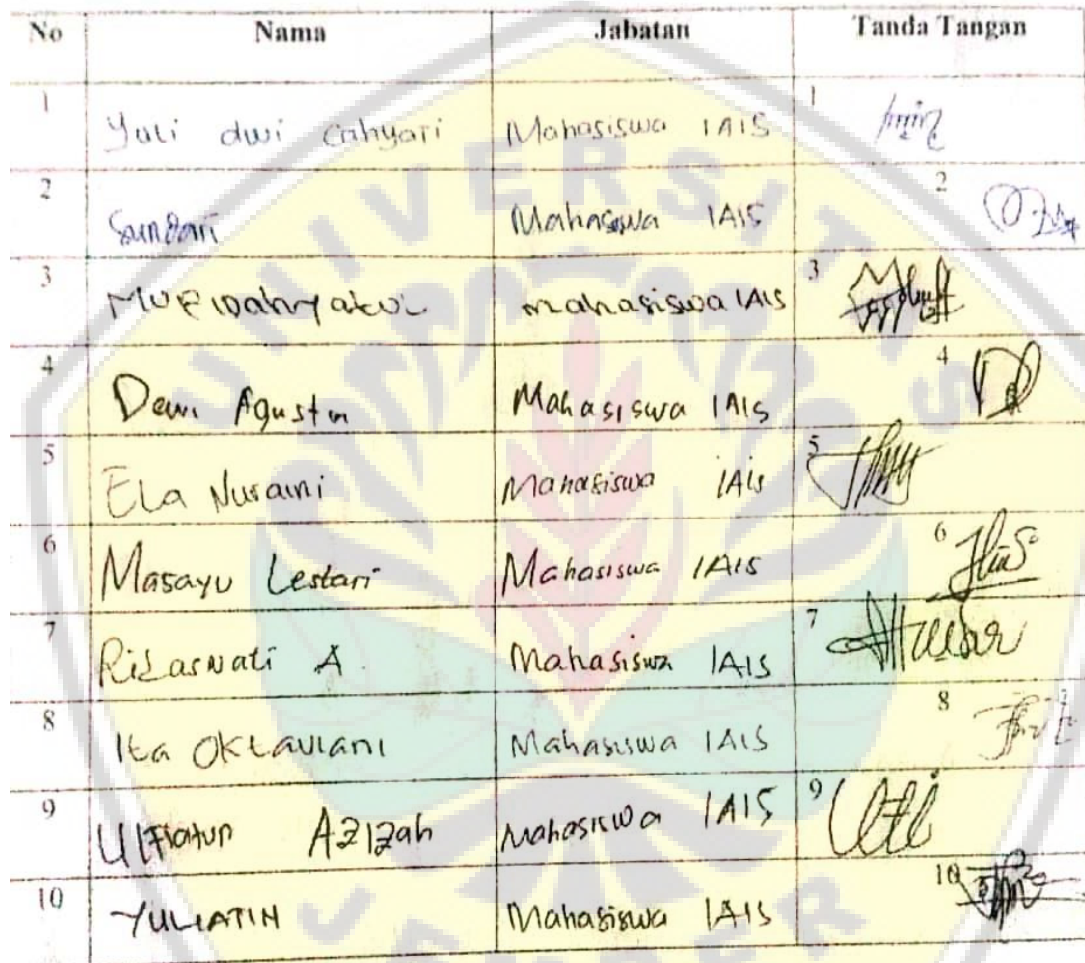 No Nama Jabatan Tanda Tangan
1 Yuli dwi Cahyari Mahasiswa IAIS 1
2 Sundari Mahasiswa IAIS 2
3 Mahasiswa IAIS 3
4 Dewi Agustin Mahasiswa IAIS 4
5 Ela Nuraini Mahasiswa IAIS 5
6 Masayu Lestari Mahasiswa IAIS 6
7 A Mahasiswa IAIS 7
8 Ita Oktaviani Mahasiswa IAIS 8
9 Ulfiatun Azizah Mahasiswa IAIS 9
10 YULIATIN Mahasiswa IAIS 10
UNIVERSITAS
JEMBER